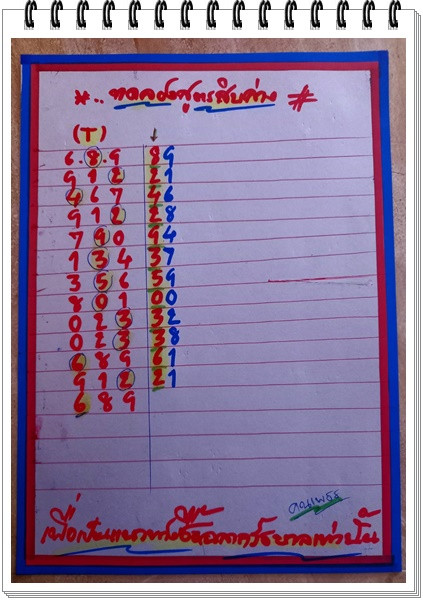 *.. ทดลองสูตรสิบล่าง #
(T) ↓
6.8.9 89
9 1 2 21
4 6 7 46
9 1 2 28
7 9 0 94
1 3 4 37
3 5 6 59
8 0 1 00
0 2 3 32
0 2 3 38
6 8 9 61
9 1 2 21
6 8 9
เพื่อเป็นแนวทางซื้อฉลากรัฐบาลเท่านั้น